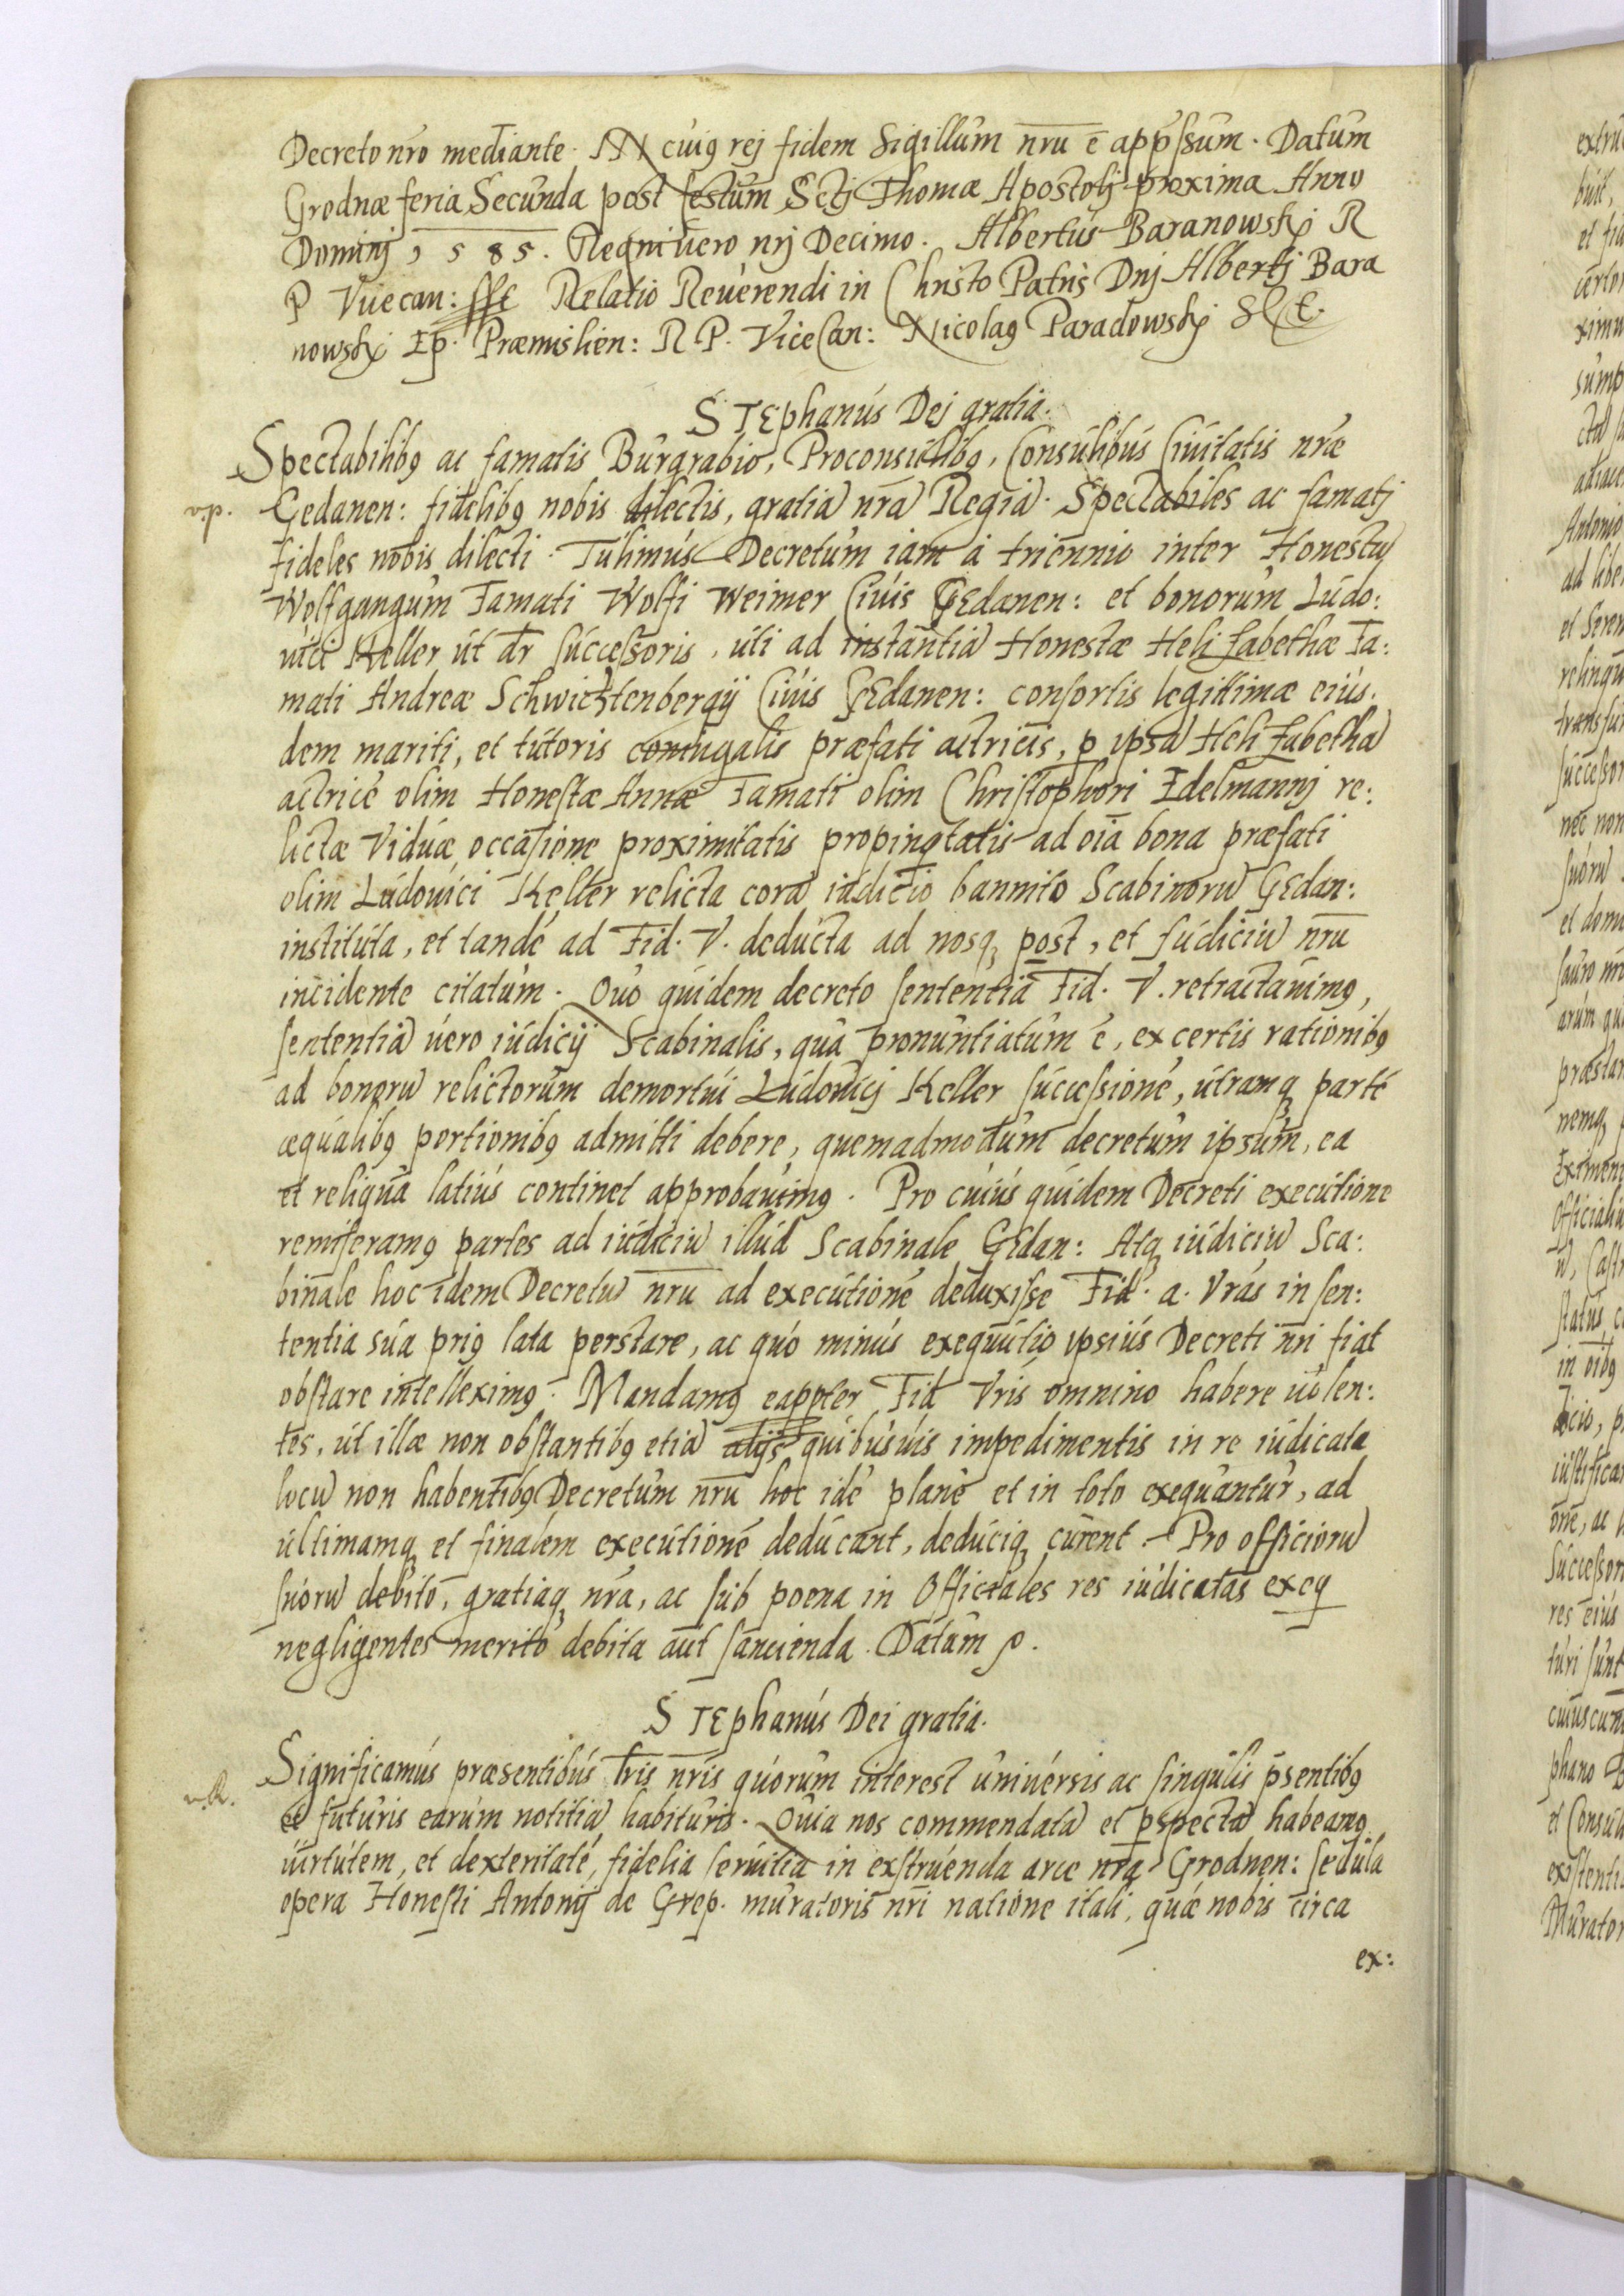 Decreto nr̄o mediante. IN cuiꝯ rej fidem Sigillum nrū ē app̄ssum. Datum
Grodnæ feria Secunda post festum Sctj Thomæ Apostolj proxima Anno
Dominj 1585. Regni vero nrj Decimo. Albertus Baranowskj R
P Vicecan: sst Relatio Reuerendi in Christo Patris Dnj Albertj Bara
nowskj Ep. Præmislien: R P. ViceCan: Nicolaꝯ Paradowskj
STEphanus Dej gratia.
Spectabilibꝯ ac famatis Burgrabio, Proconsulibꝯ, Consulibus Ciuitatis nræ
Gedanen: fidelibꝯ nobis dilectis, gratiā nrā Regiā. Spectabiles ac famatj
fideles nobis dilecti. Tulimus Decretum iam à triennio inter Honestū
Wolfgangum Famati Wolfi Weimer Ciuis GEdanen: et bonorum Ludo:
uici Keller ut dr̄ successoris, uti ad instantiā Honestæ Helizabethæ Fa:
mati Andreæ Schwichtenbergij Ciuis GEdanen: consortis legittimæ eius.
dem mariti, et tutoris coniugalis præfati actricis, p ipsā Helizabethā
actricē olim Honestæ Annæ Famati olim Christophori Edelmannj re:
lictæ Viduæ occasione proximitatis propinqtatis ad oīa bona præfati
olim Ludouici Keller relicta corā iudicio bannito Scabinorū GEdan:
instituta, et tandē ad Fid. V. deducta ad nosq post, et Iudiciū nrū
incidente citatum. Quo quidem decreto sententiā Fid. V. retractauimꝯ,
sententiā uero iudicij Scabinalis, qua pronuntiatum ē, ex certis rationibꝯ
ad bonorū relictorum demortui Ludouicj Keller successionē, utramq partē
æqualibꝯ portionibꝯ admitti debere, quemadmodum decretum ipsum, ea
et reliqua latius continet approbauimꝯ. Pro cuius quidem Decreti executione
remiseramꝯ partes ad iudiciū illud Scabinale GEdan: Atq iudiciū Sca:
binale hoc idem Decretū nrū ad executionē deduxisse Fid. a. Vras in sen:
tentia sua priꝯ lata perstare, ac quo minus exequutio ipsius Decreti nri fiat
obstare intelleximꝯ. Mandamꝯ eappter Fid Vris omnino habere uolen:
tes, ut illæ non obstantibꝯ etiā alijs quibusuis impedimentis in re iudicata
locū non habentibꝯ Decretum nrū hoc idē plane et in toto exequantur, ad
ultimamq et finalem executionē deducant, deduciq curent. Pro officiorū
suorū debito, gratiaq nra, ac sub poena in Officiales res iudicatas exeq
negligentes merito debita aut sancienda. Datum
STEphanus Dei gratia.
Significamus præsentibus lr̄is nris quorum interest uniuersis ac singulis p̄sentibꝯ
et futuris earum notitiā habituris. Quia nos commendatā et pspectā habeamꝯ
uirtutem, et dexteritatē, fidelia seruitia in exstruenda arce nra Grodnen: sedula
opera Honesti Antonij de Grep. muratoris nri natione itali, quæ nobis circa
ex: